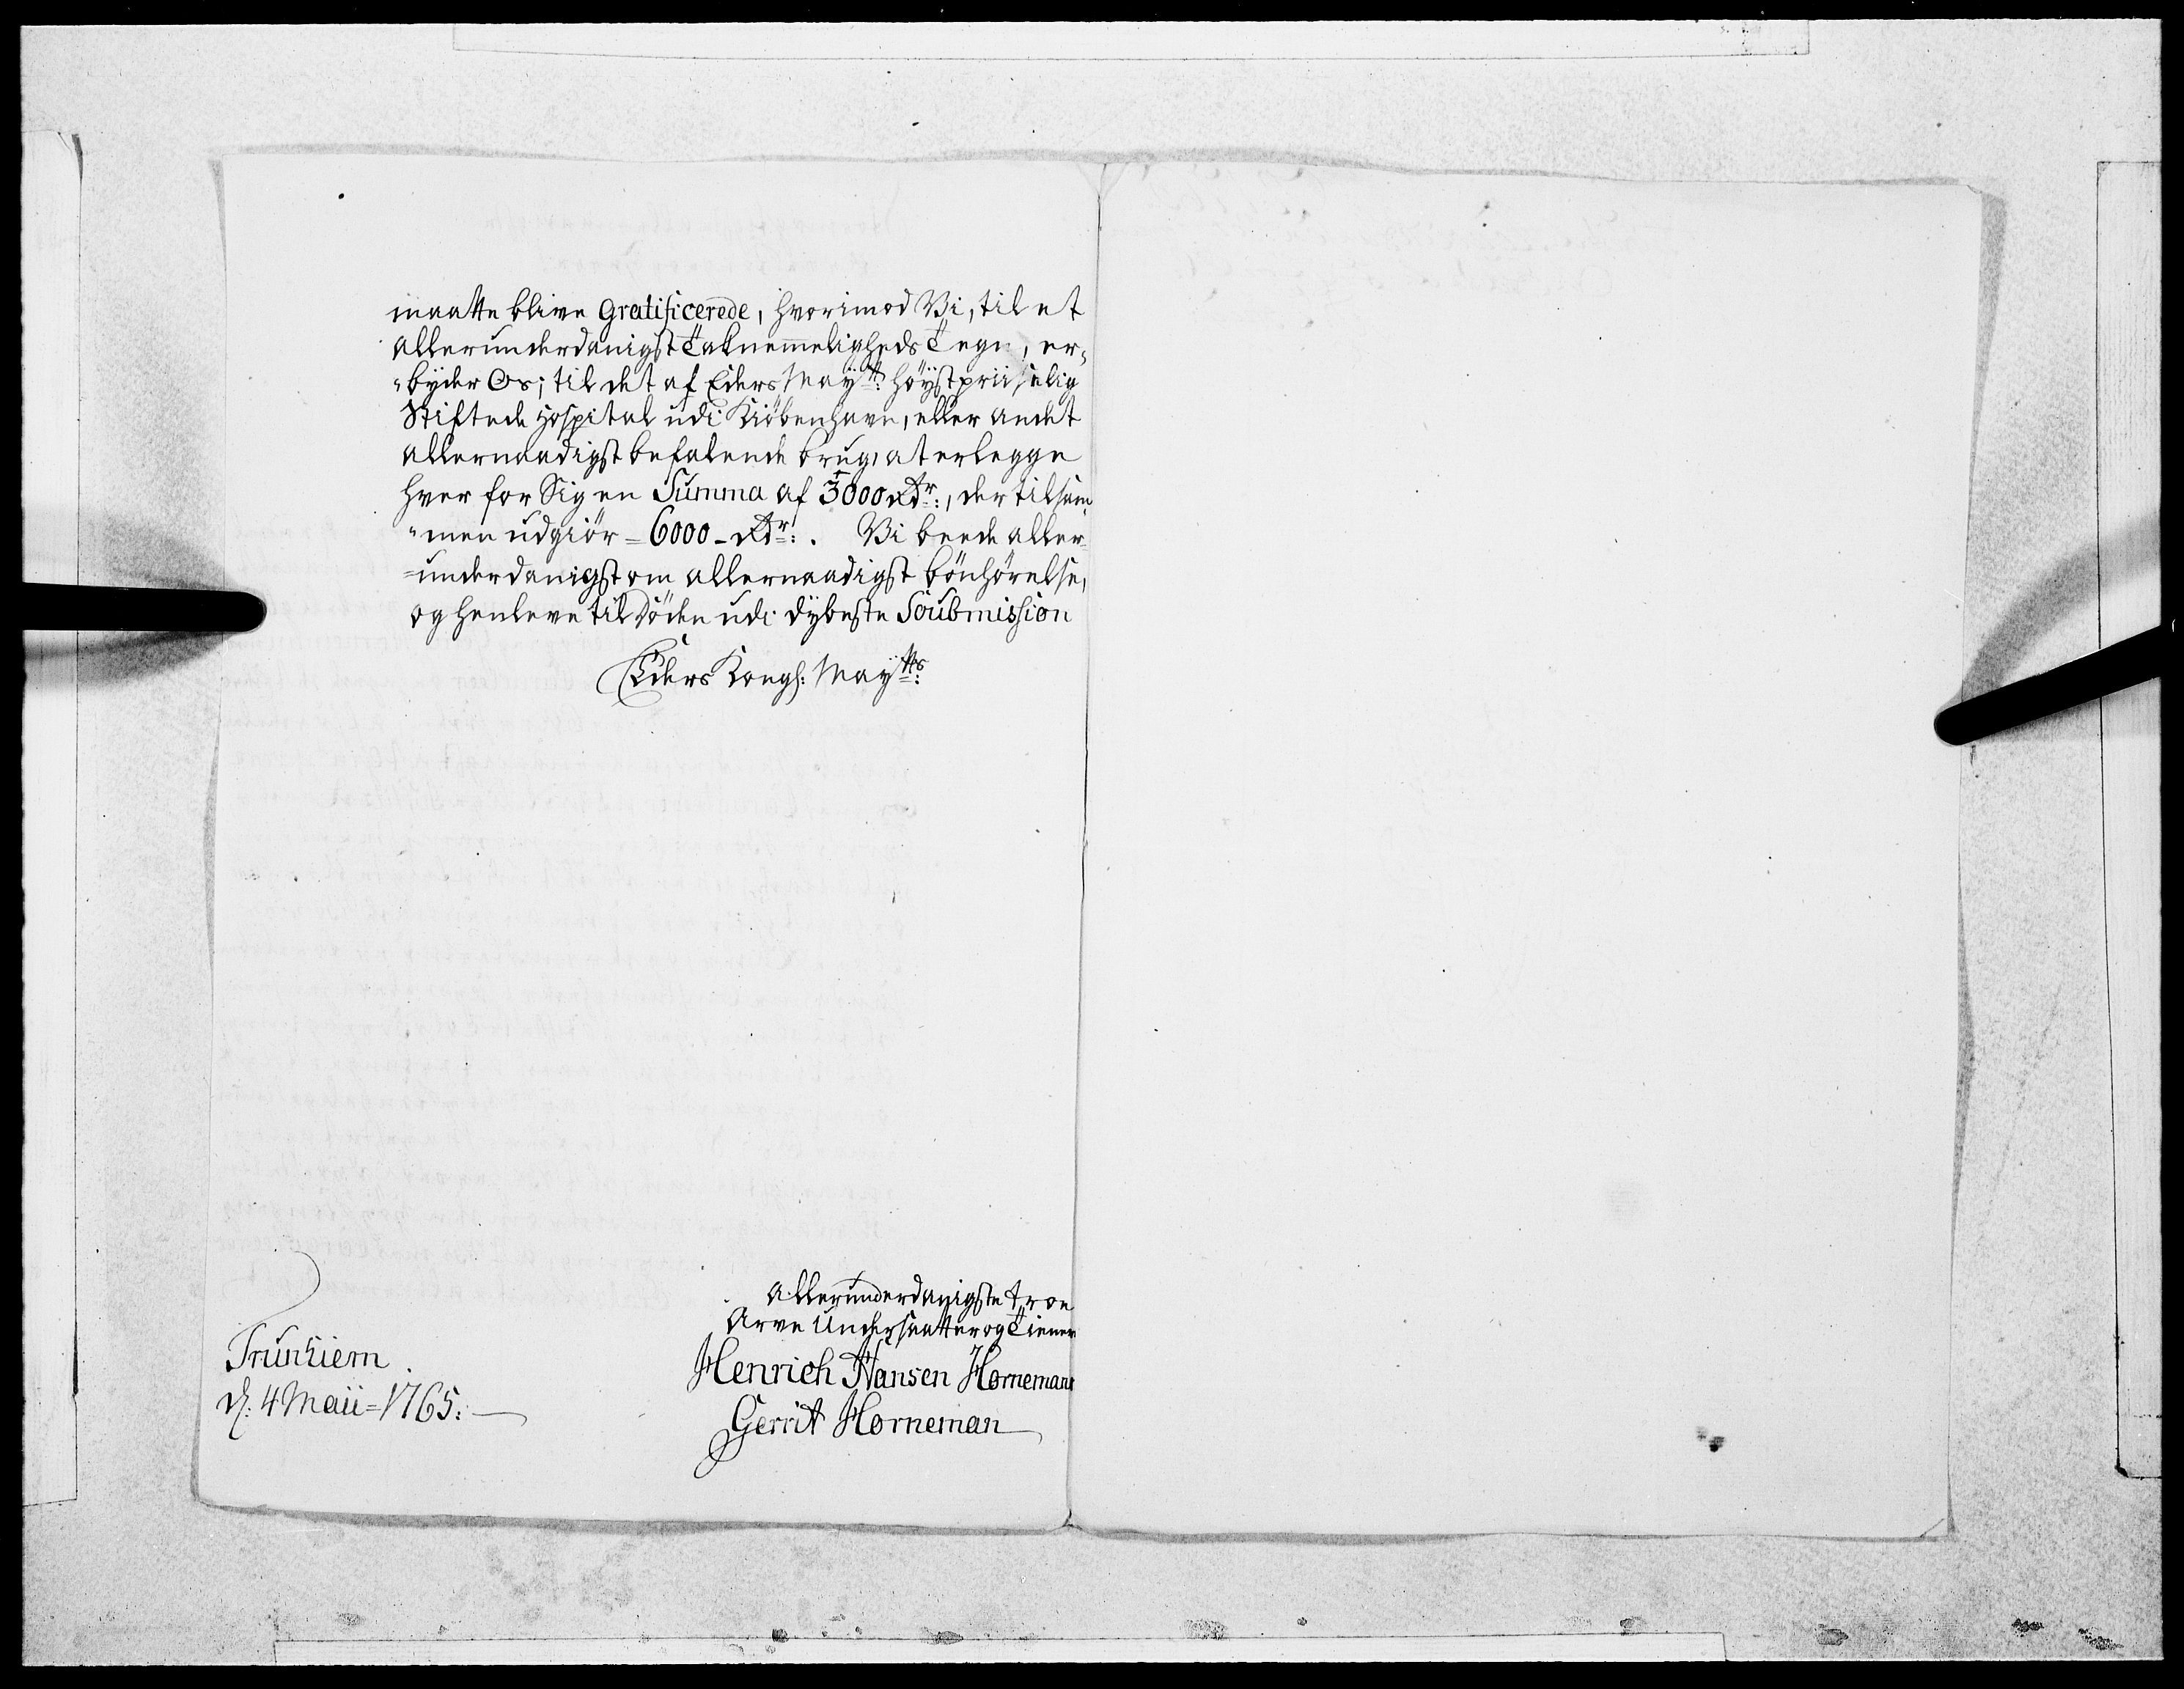 maatte blive gratificerede, hvorimod Vi, til et
allerunderdanigst Taknemmeligheds Tegn, er„
„byder Os; til det af Eders Mayᵗᵗ: höystpriiselig
Stiftede Hospital udi Kiöbenhavn, eller andet
allernaadigst befalende brug, at erlegge
hver for Sig en Summa af 3000 Rdʳ:, der tilsam
„men udgiör = 6000 - Rdʳ:. Vi beede aller=
=underdanigst om allernaadigst bönhörelse,
og henleve til Döden udi dybeste Soubmission
Eders Kongl: Mayᵗᵗˢ:
Allerunderdanigste troe
Arve Undersaatter og Tiener
Trunhiem
d: 4 Maii = 1765:
Henrich Hansen Horneman
Gerrit Horneman